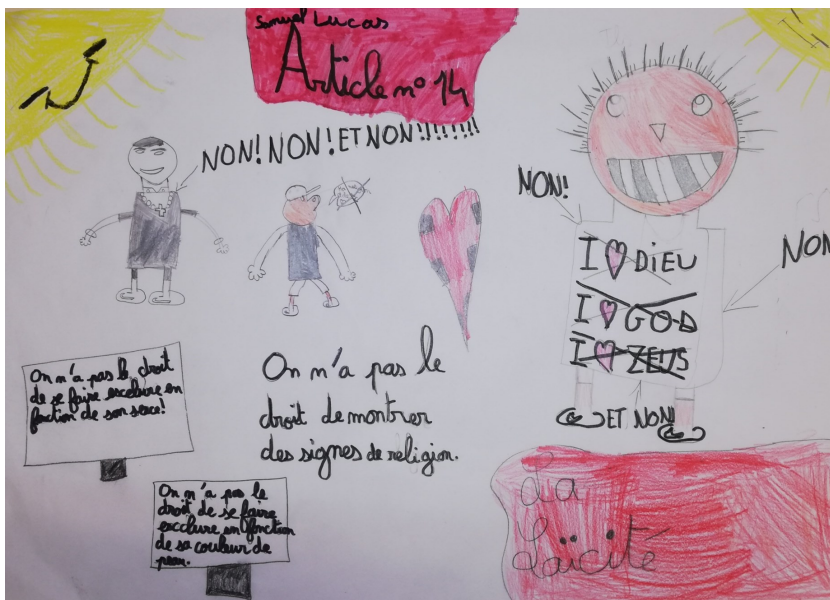 Samuel Lucas
Article n° 14
NON! NON! ET NON!!!!!!!!
NON!
NON
I ♥ DIEU
I ♥ GOD
I ♥ ZEUS
ET NON!
On n'a pas le droit
de se faire exclure en
fonction de son sexe!
On n'a pas le
droit de montrer
des signes de religion.
On n'a pas le
droit de se faire
exclure en fonction
de sa couleur de
peau.
La
Laïcité